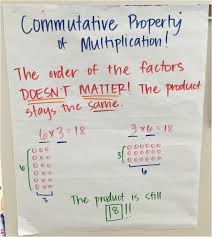 Commutative Property
of Multiplication!
The order of the factors
DOESN'T MATTER! The product
stays the same.
6 x 3 = 18
3 x 6 = 18
6
3
3
6
The product is still
18!!